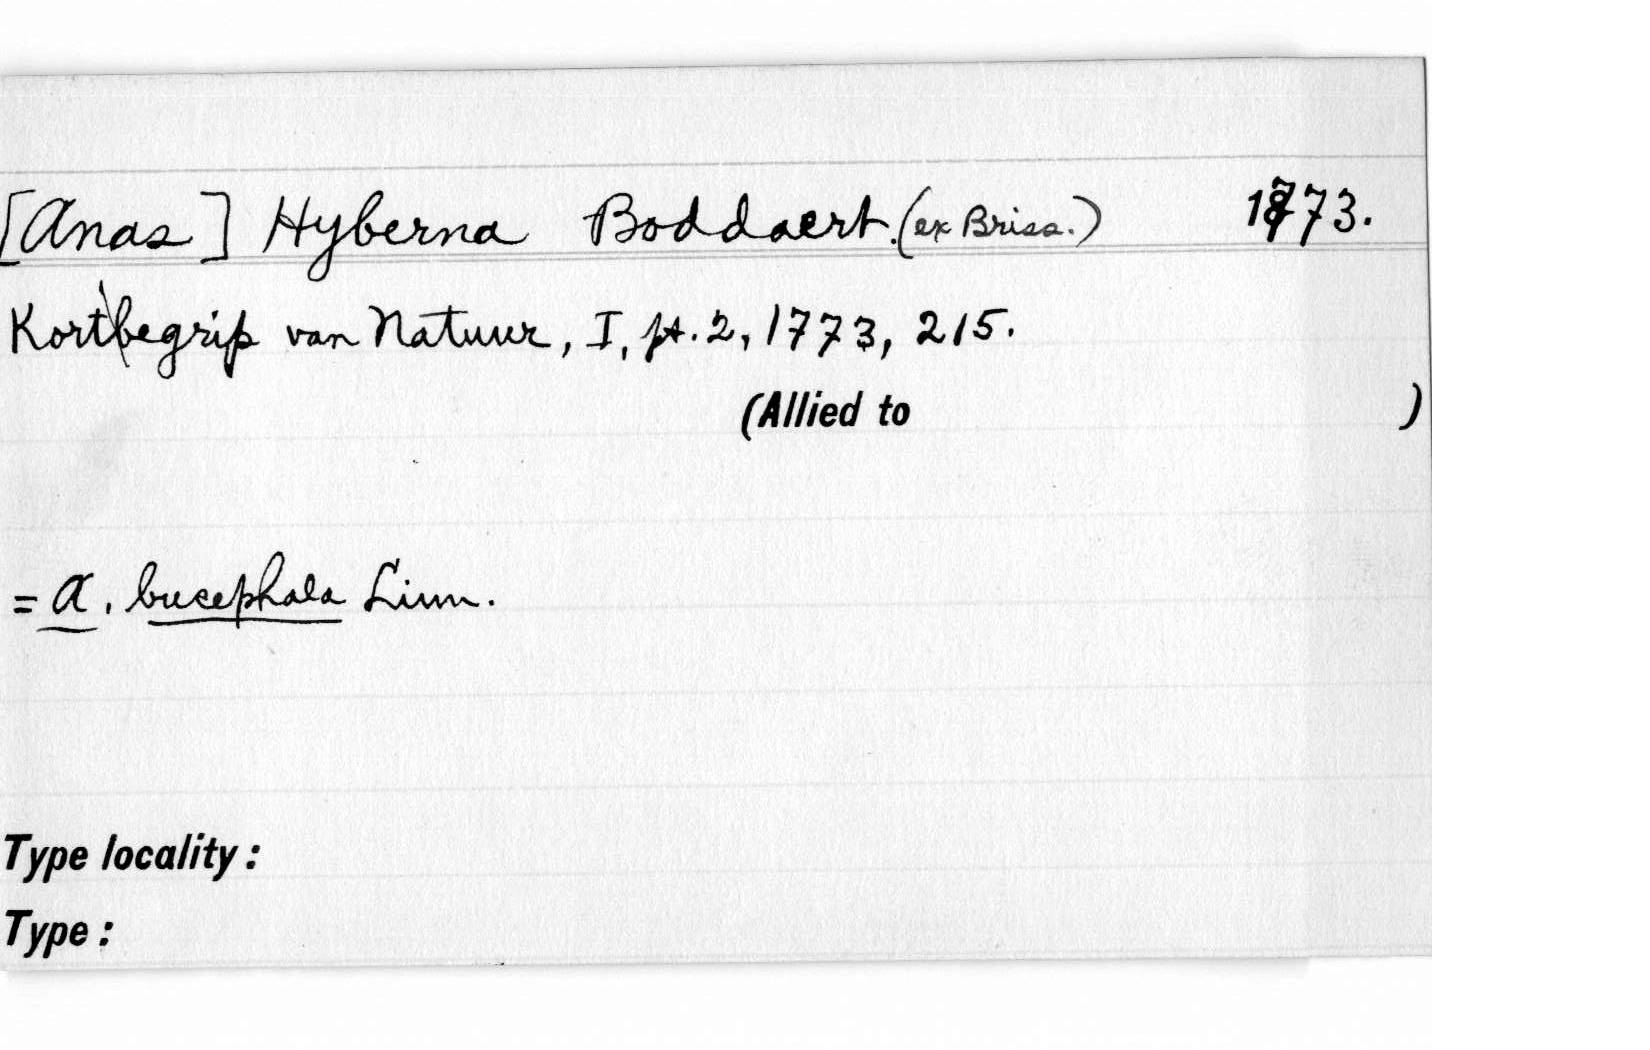 [Anas] Hyberna Boddaert. (ex Briss.) 1773.
Kort begrip van Natuur, I, pt. 2, 1773, 215.
(Allied to )
= A. bucephala Linn.
Type locality:
Type: